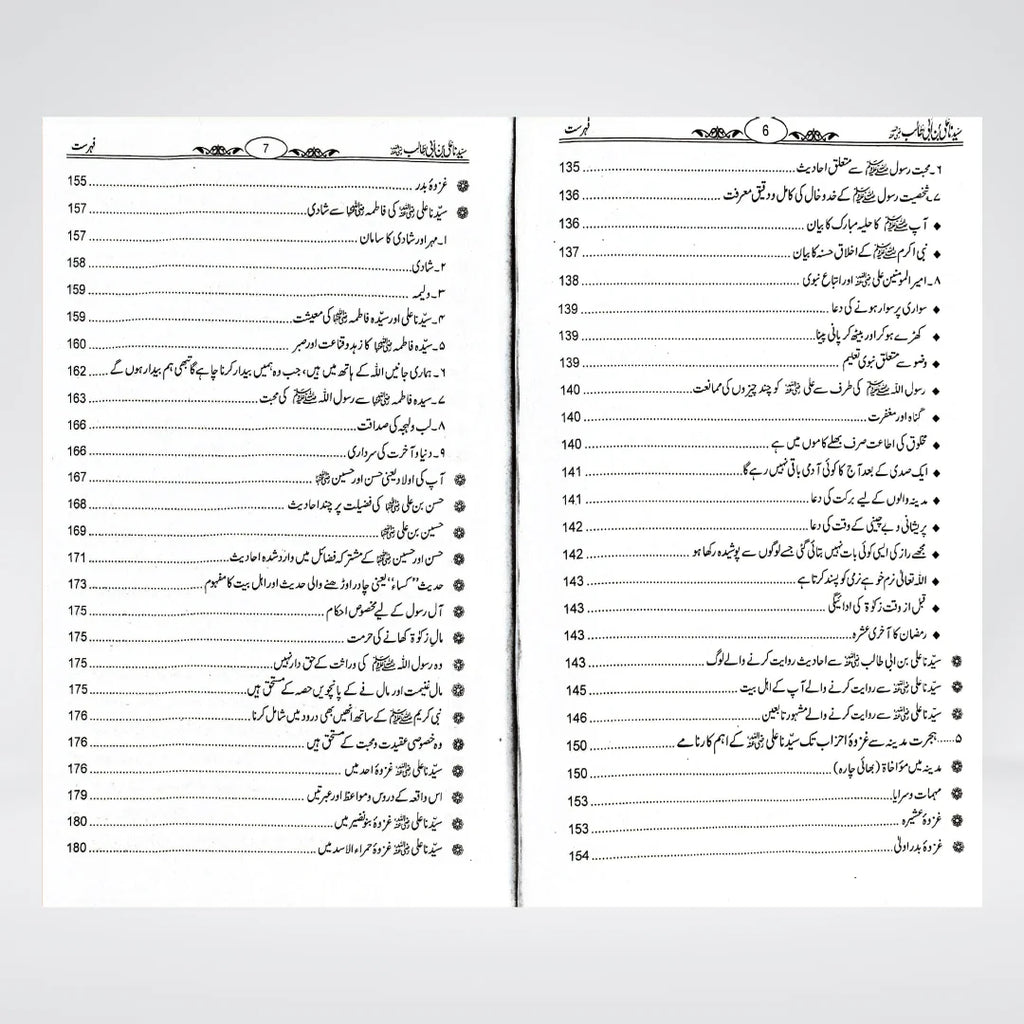 سیّدنا علی بن ابی طالب رضی اللہ عنہ 6 فہرست
۶۔ محبت رسول ﷺ سے متعلق احادیث 135
۷۔ شخصیت رسول ﷺ کے خدوخال کی کامل و دقیق معرفت 136
♦ آپ ﷺ کا حلیہ مبارک کا بیان 136
♦ نبی اکرم ﷺ کے اخلاق حسنہ کا بیان 137
۸۔ امیر المومنین علی رضی اللہ عنہ اور اتباع نبوی 138
♦ سواری پر سوار ہونے کی دعا 139
♦ کھڑے ہو کر اور بیٹھ کر پانی پینا 139
♦ وضو سے متعلق نبوی تعلیم 139
♦ رسول اللہ ﷺ کی طرف سے علی رضی اللہ عنہ کو چند چیزوں کی ممانعت 140
♦ گناہ اور مغفرت 140
♦ مخلوق کی اطاعت صرف بھلے کاموں میں ہے 140
♦ ایک صدی کے بعد آج کا کوئی آدمی باقی نہیں رہے گا 141
♦ مدینہ والوں کے لیے برکت کی دعا 141
♦ پریشانی و بے چینی کے وقت کی دعا 142
♦ مجھے راز کی ایسی کوئی بات نہیں بتائی گئی جسے لوگوں سے پوشیدہ رکھا ہو 142
♦ اللہ تعالیٰ نرم خو ہے نرمی کو پسند کرتا ہے 143
♦ قبل از وقت زکوٰۃ کی ادائیگی 143
♦ رمضان کا آخری عشرہ 143
❁ سیّدنا علی بن ابی طالب رضی اللہ عنہ سے احادیث روایت کرنے والے لوگ 143
❁ سیّدنا علی رضی اللہ عنہ سے روایت کرنے والے آپ کے اہل بیت 145
❁ سیّدنا علی رضی اللہ عنہ سے روایت کرنے والے مشہور تابعین 146
۵..... ہجرت مدینہ سے غزوۂ احزاب تک سیّدنا علی رضی اللہ عنہ کے اہم کارنامے 150
❁ مدینہ میں مؤاخاۃ (بھائی چارہ) 150
❁ مہمات و سرایا 153
❁ غزوۂ عشیرہ 153
❁ غزوۂ بدر اولیٰ 154
سیّدنا علی بن ابی طالب رضی اللہ عنہ 7 فہرست
❁ غزوۂ بدر 155
❁ سیّدنا علی رضی اللہ عنہ کی فاطمہ رضی اللہ عنہا سے شادی 157
۱۔ مہر اور شادی کا سامان 157
۲۔ شادی 158
۳۔ ولیمہ 159
۴۔ سیّدنا علی اور سیّدہ فاطمہ رضی اللہ عنہما کی معیشت 159
۵۔ سیّدہ فاطمہ رضی اللہ عنہا کا زہد و قناعت اور صبر 160
۶۔ ہماری جانیں اللہ کے ہاتھ میں ہیں، جب وہ ہمیں بیدار کرنا چاہے گا تبھی ہم بیدار ہوں گے 162
۷۔ سیدہ فاطمہ رضی اللہ عنہا سے رسول اللہ ﷺ کی محبت 163
۸۔ لب و لہجہ کی صداقت 166
۹۔ دنیا و آخرت کی سرداری 166
❁ آپ کی اولاد یعنی حسن اور حسین رضی اللہ عنہما 167
❁ حسن بن علی رضی اللہ عنہما کی فضیلت پر چند احادیث 168
❁ حسین بن علی رضی اللہ عنہما 169
❁ حسن اور حسین رضی اللہ عنہما کے مشترکہ فضائل میں وارد شدہ احادیث 171
❁ حدیث ’’کساء‘‘ یعنی چادر اوڑھنے والی حدیث اور اہل بیت کا مفہوم 173
❁ آل رسول کے لیے مخصوص احکام 175
❁ مال زکوٰۃ کھانے کی حرمت 175
❁ وہ رسول اللہ ﷺ کی وراثت کے حق دار نہیں 175
❁ مال غنیمت اور مال فے کے پانچویں حصہ کے مستحق ہیں 175
❁ نبی کریم ﷺ کے ساتھ انھیں بھی درود میں شامل کرنا 176
❁ وہ خصوصی عقیدت و محبت کے مستحق ہیں 176
❁ سیّدنا علی رضی اللہ عنہ غزوۂ احد میں 176
❁ اس واقعہ کے دروس و مواعظ اور عبرتیں 179
❁ سیّدنا علی رضی اللہ عنہ غزوۂ بنو نضیر میں 180
❁ سیّدنا علی رضی اللہ عنہ غزوۂ حمراء الاسد میں 180